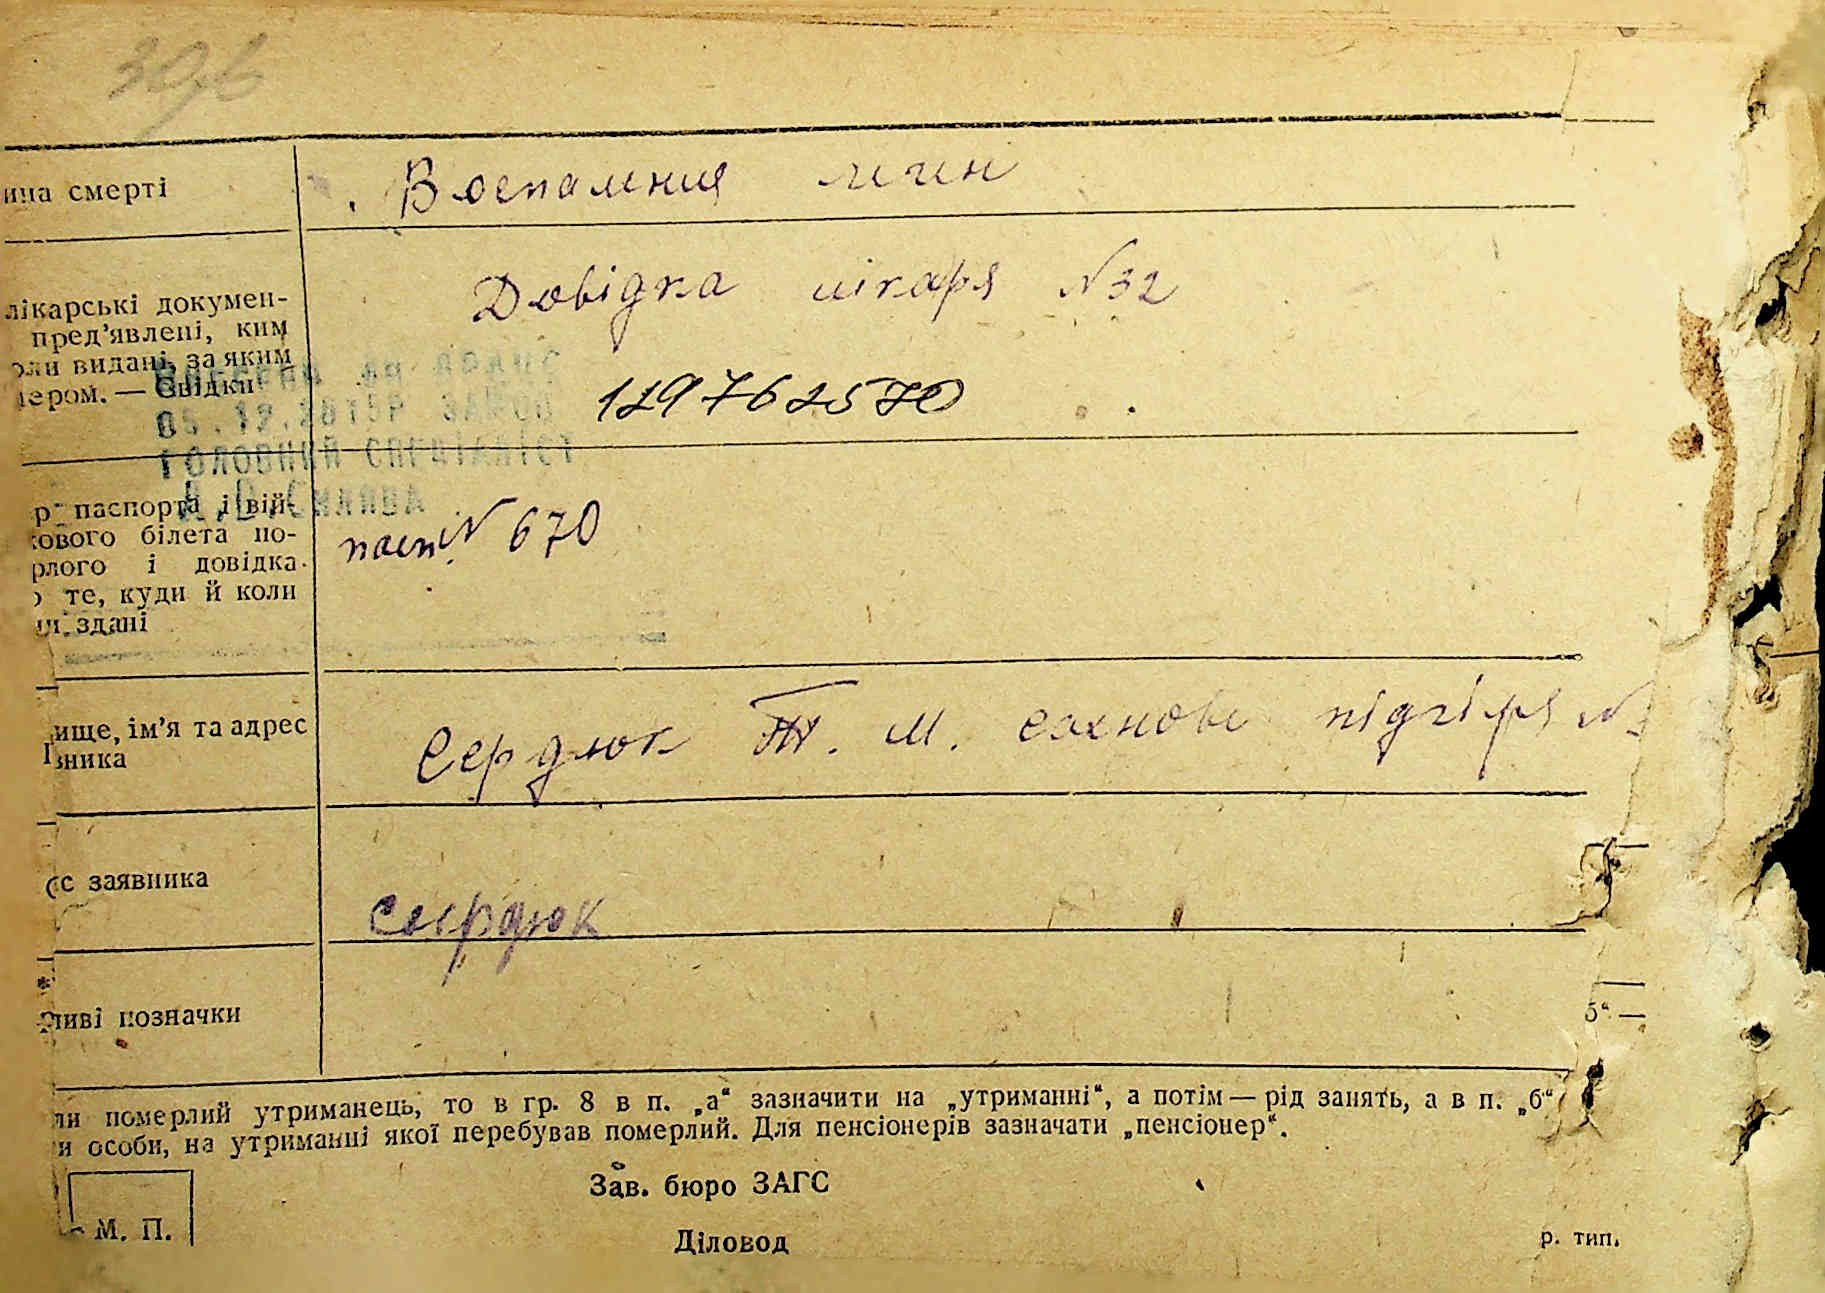 ина смерті
Воспаления леген
лікарські докумен-
пред’явлені, ким
оли видані, за яким
мером. — Свідки
Довідка лікаря №32
129762570
ГОЛОВНИЙ СПЕЦІАЛІСТ
р паспорта і вій-
кового білета по-
рлого і довідка
о те, куди й коли
ни здані
пасп. № 670
ище, ім’я та адрес
вника
Сердюк М.
с заявника
Сердюк
*
ливі позначки
б“ —
ли померлий утриманець, то в гр. 8 в п. „а“ зазначити на „утриманні“, а потім — рід занять, а в п. „б“
и особи, на утриманні якої перебував померлий. Для пенсіонерів зазначати „пенсіонер“.
Зав. бюро ЗАГС
М. П.
Діловод
р. тип.